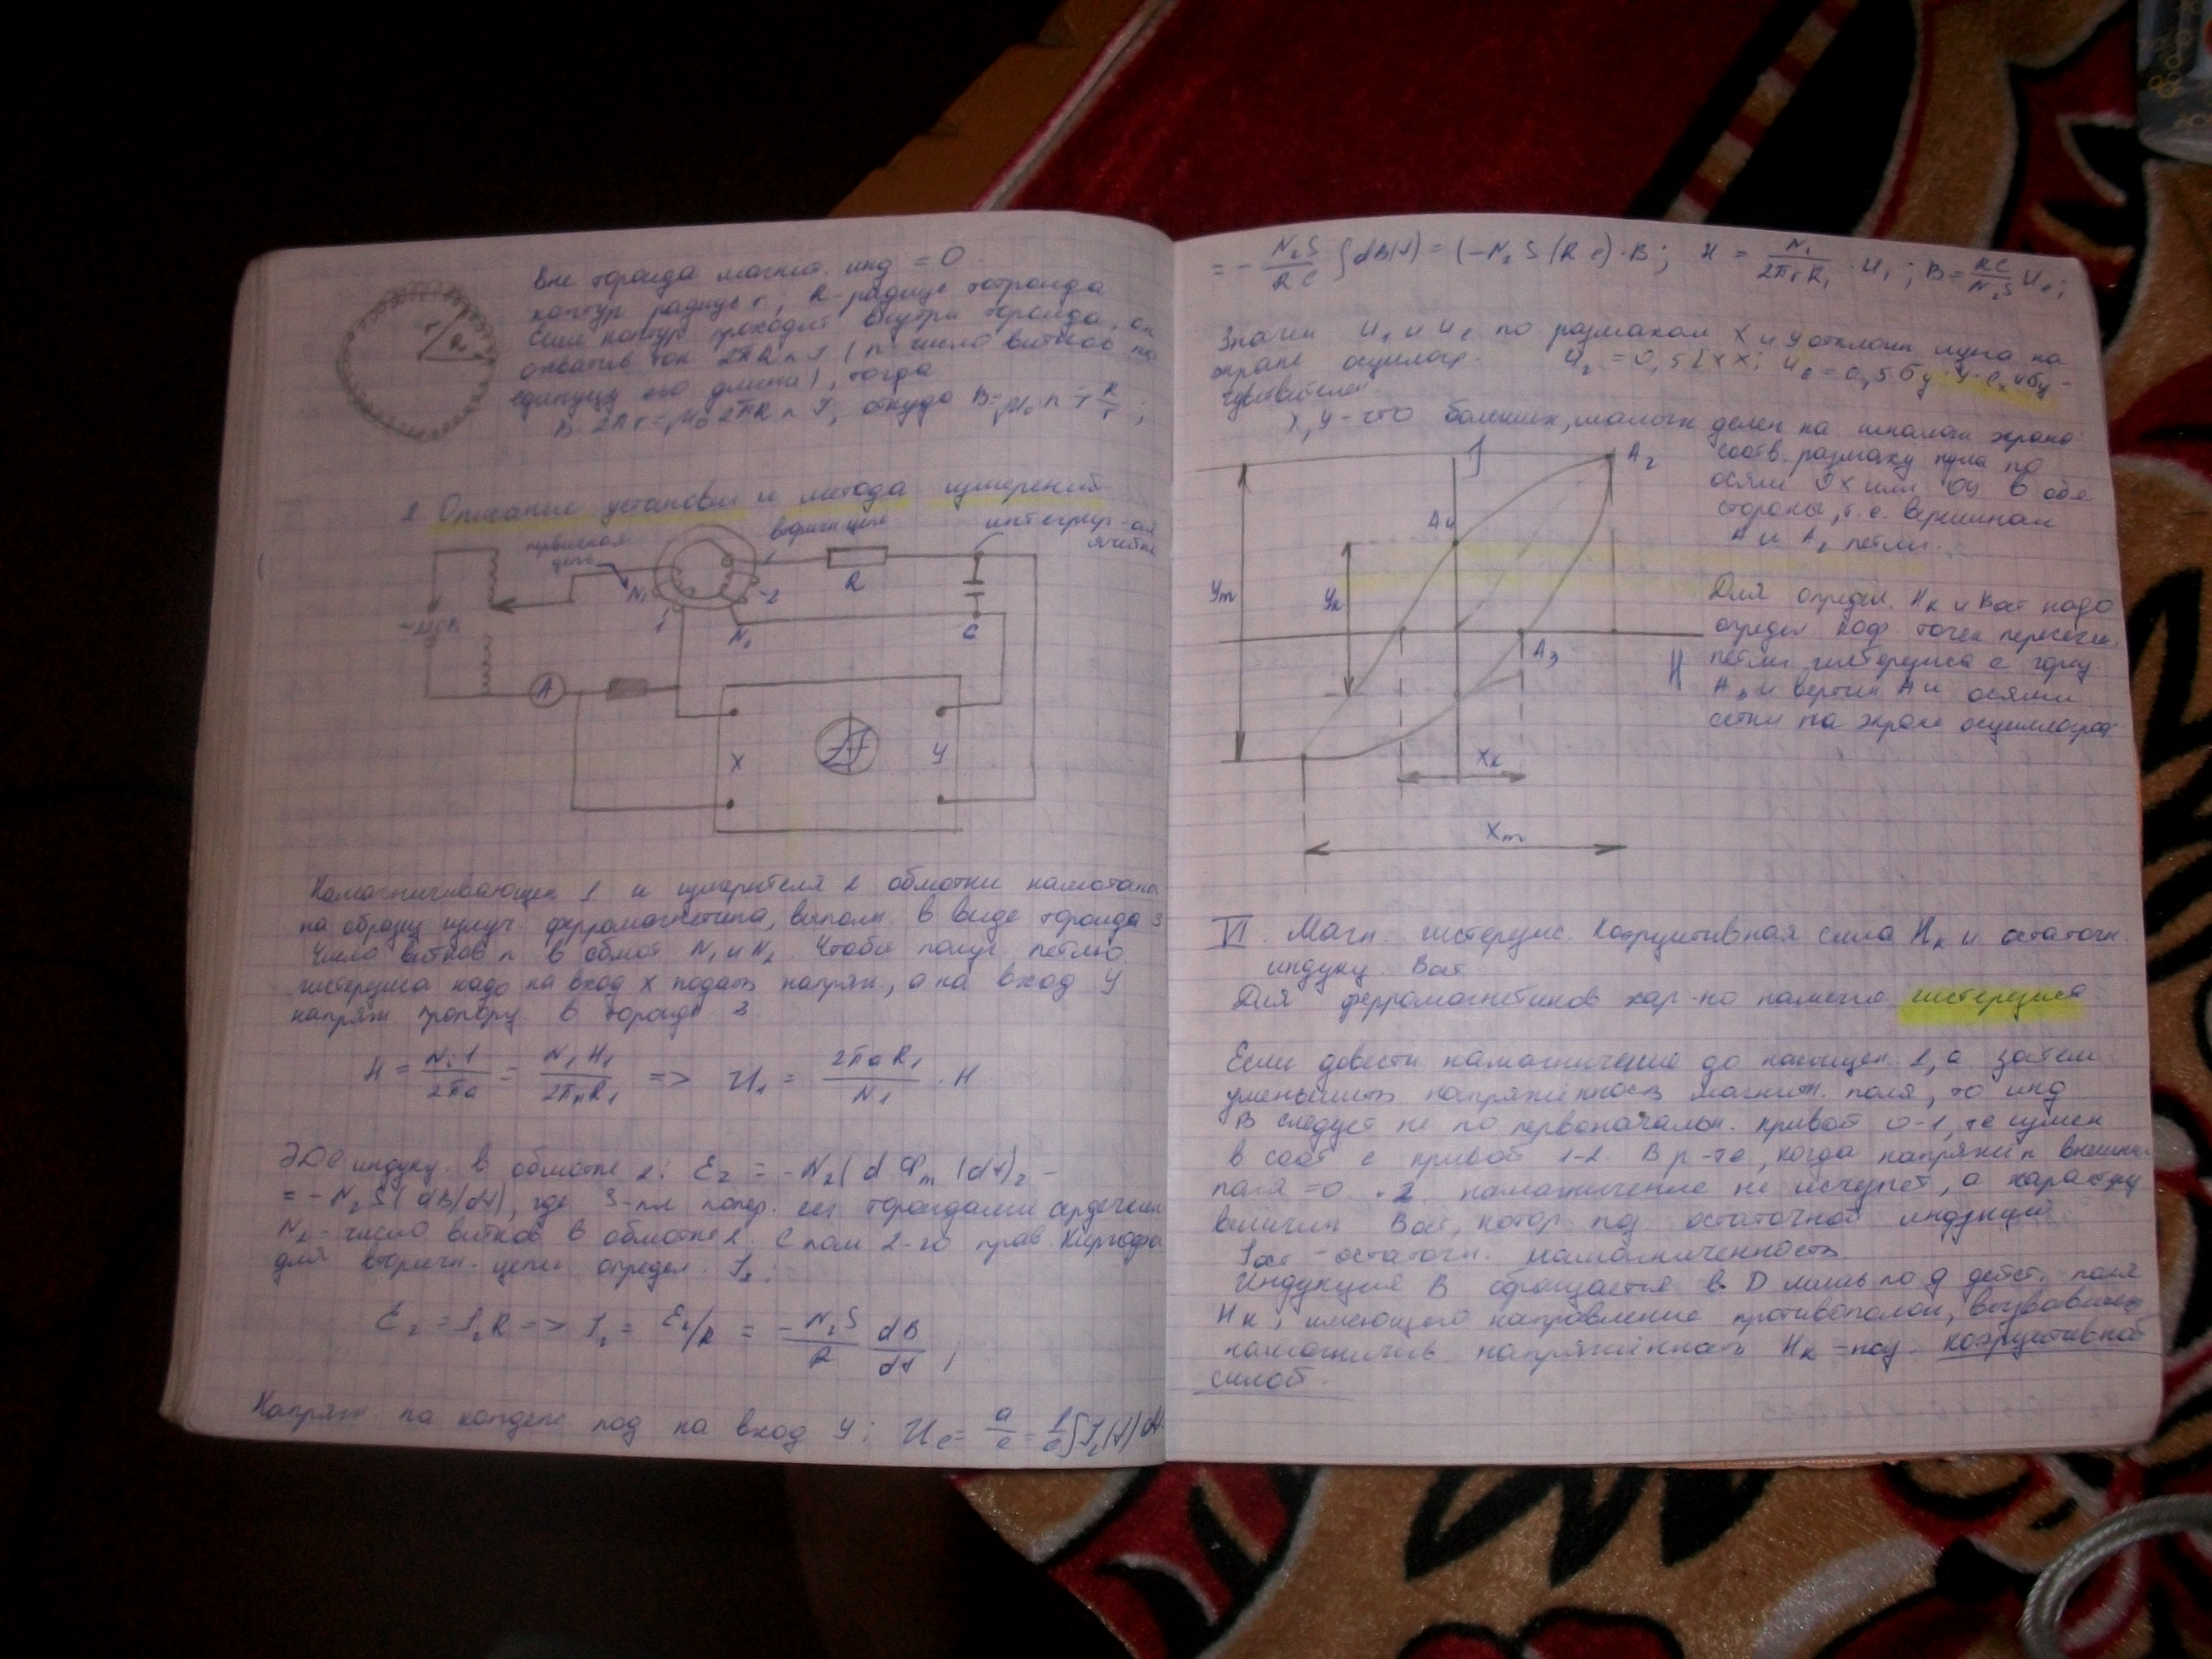 Вне тороида магнит. инд = 0
контур радиус r, R - радиус тотроида
Если контур проходит внутри тороида, он
охватив ток 2πRnI (n число витков на
единицу его длины), тогда
B·2πr = μ₀2πRnI, откуда B = μ₀nI R/r;
r
R
2 Описание установки и метода измерений
первичная цепь
вторич цепь
интегрир-ая ячейка
N₁
1
2
1
N₂
R
C
~220В
A
X
У
Намагничивающая 1 и измерителя 2 обмотки намотаны
на образец изуч. ферромагнетика, выполн. в виде тороида 3
Число витков n в обмот N₁ и N₂. Чтобы получ петлю
гистерезиса надо на вход X подать напряж., а на вход У
напряж пропорц. B в тороиде 3.
H = N₁I/2πa = N₁H₁/2πₐR₁ => U₁ = 2πaR₁/N₁ · H
ЭДС индукц. в обмотке 2: Ɛ₂ = -N₂(dФₘ/dt)₂ -
= -N₂S(dB/dt), где S-пл попер. сеч тороидами сердечник
N₂ - число витков в обмотке 2. С пом 2-го прав. Кирхгофа
для вторичн. цепи определ. I₂:
Ɛ₂ = I₂R => I₂ = Ɛ₂/R = -N₂S/R dB/dt;
Напряж на конденс под на вход У: Uc = a/c = 1/c ∫I₂(t)dt
= - N₂S/RC ∫dB(t) = (-N₂S(RC)·B; H = N₁/2πrR₁ · U₁; B = RC/N₂S Uc;
Значен U₁ и Uc по размахам X и У отклон луча на
экране осцилогр.
Чувствителен
X, У - что больших, малых делен на шкалах экрана
соотв. размаху луча по
осям OX или OY в обе
стороны, т.е. вершинам
A и A₂ петли.
J
A₂
A₄
Уm
Ук
A₃
H
Xк
Xm
Для определ. Hк и Bост надо
определ коор. точек пересечен.
петли гистерезиса с гориз.
A₃ и вертик A₄ осями
сетки на экране осциллограф
VI. Магн. гистерезис. Коэрцитивная сила Hк и остаточн.
индукц. Bост.
Для ферромагнетиков хар-но явление гистерезиса
Если довести намагничение до насыщен. 1, а затем
уменьшить напряжённость магнит. поля, то инд
B следует не по первоначальн. кривой 0-1, те измен
в соот с кривой 1-2. В р-те, когда напряжён внешн
поля = 0 ·2 намагничение не исчезнет, а характер
величин Bост, котор наз остаточной индукцией
Jост - остаточн. намагниченность
Индукция B обращается в 0 лишь под дейст. поля
Hк, имеющего направление противополож, вызвавшему
намагничив. напряжённость Hк - наз. коэрцитивной
силой.